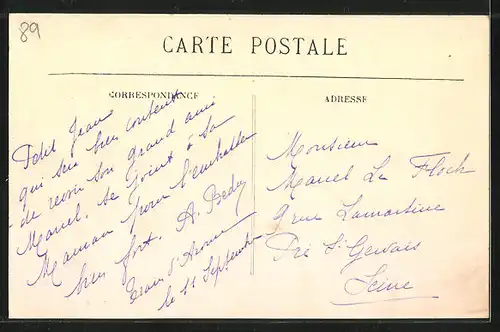 89
CARTE POSTALE
CORRESPONDANCE
Petit Jean
qui sera bien content
de revoir son grand ami
Manel, se joint à sa
Maman pour t'embrasser
bien fort. A. Bedey
le 11 Septembre
ADRESSE
Monsieur
Manel Le Floch
9 rue Lamartine
Pré St Gervais
Seine